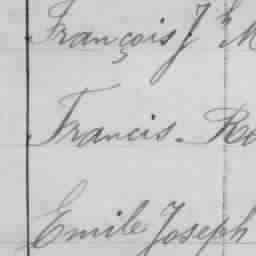 François Jh M
Francis. Ro
Emile Joseph